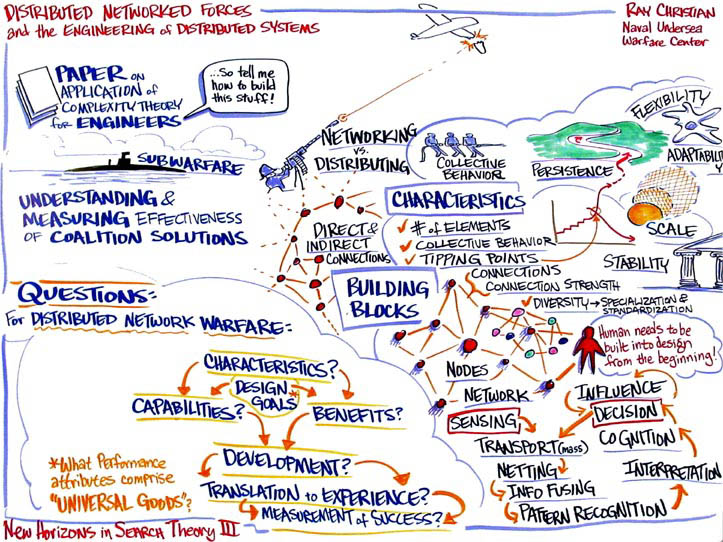 DISTRIBUTED NETWORKED FORCES
and the ENGINEERING of DISTRIBUTED SYSTEMS
RAY CHRISTIAN
NAVAL UNDERSEA
WARFARE CENTER
PAPER ON
APPLICATION of
COMPLEXITY THEORY
for ENGINEERS
...So tell me
how to build
this stuff!
SUB WARFARE
UNDERSTANDING &
MEASURING EFFECTIVENESS
OF COALITION SOLUTIONS
NETWORKING
vs.
DISTRIBUTING
COLLECTIVE
BEHAVIOR
PERSISTENCE
FLEXIBILITY
ADAPTABILIT
Y
SCALE
STABILITY
CHARACTERISTICS
✓ # of ELEMENTS
✓ COLLECTIVE BEHAVIOR
✓ TIPPING POINTS
DIRECT &
INDIRECT
CONNECTIONS
BUILDING
BLOCKS
CONNECTIONS
CONNECTION STRENGTH
✓ DIVERSITY → SPECIALIZATION &
STANDARDIZATION
NODES
NETWORK
Human needs to be
built into design
from the beginning!
SENSING
TRANSPORT (mass)
NETTING
INFO FUSING
PATTERN RECOGNITION
INTERPRETATION
COGNITION
DECISION
INFLUENCE
QUESTIONS:
For DISTRIBUTED NETWORK WARFARE:
CHARACTERISTICS?
DESIGN
GOALS*
CAPABILITIES?
BENEFITS?
DEVELOPMENT?
TRANSLATION to EXPERIENCE?
MEASUREMENT of SUCCESS?
*What Performance
attributes comprise
"UNIVERSAL GOODS"?
NEW HORIZONS in SEARCH THEORY III